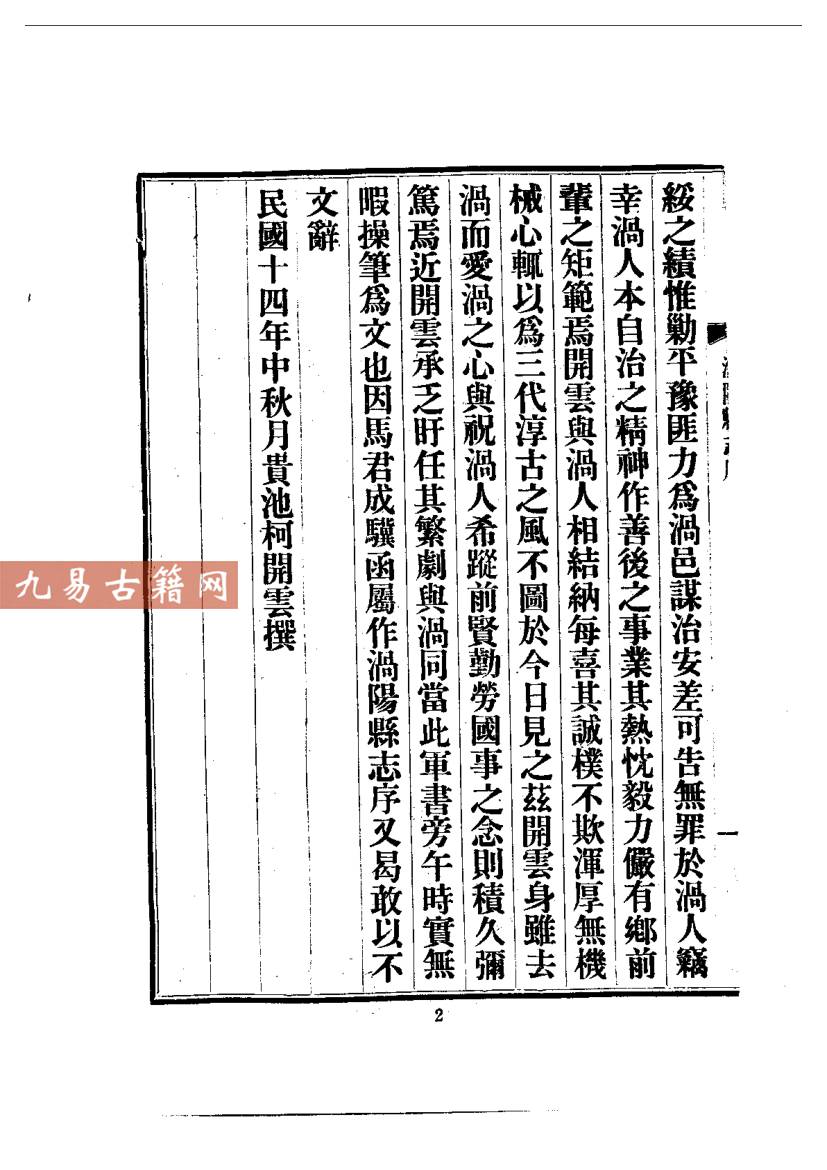 綏之績惟勦平豫匪力爲渦邑謀治安差可告無罪於渦人竊
幸渦人本自治之精神作善後之事業其熱忱毅力儼有鄉前
輩之矩範焉開雲與渦人相結納每喜其誠樸不欺渾厚無機
械心輒以爲三代淳古之風不圖於今日見之茲開雲身雖去
渦而愛渦之心與祝渦人希蹤前賢勤勞國事之念則積久彌
篤焉近開雲承乏盱任其繁劇與渦同當此軍書旁午時實無
暇操筆爲文也因馬君成驥函屬作渦陽縣志序又曷敢以不
文辭
民國十四年中秋月貴池柯開雲撰
一
2
九易古籍网